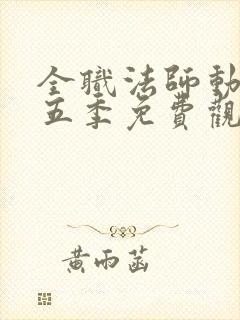 全職法師動
五季免費觀
黃雨菡